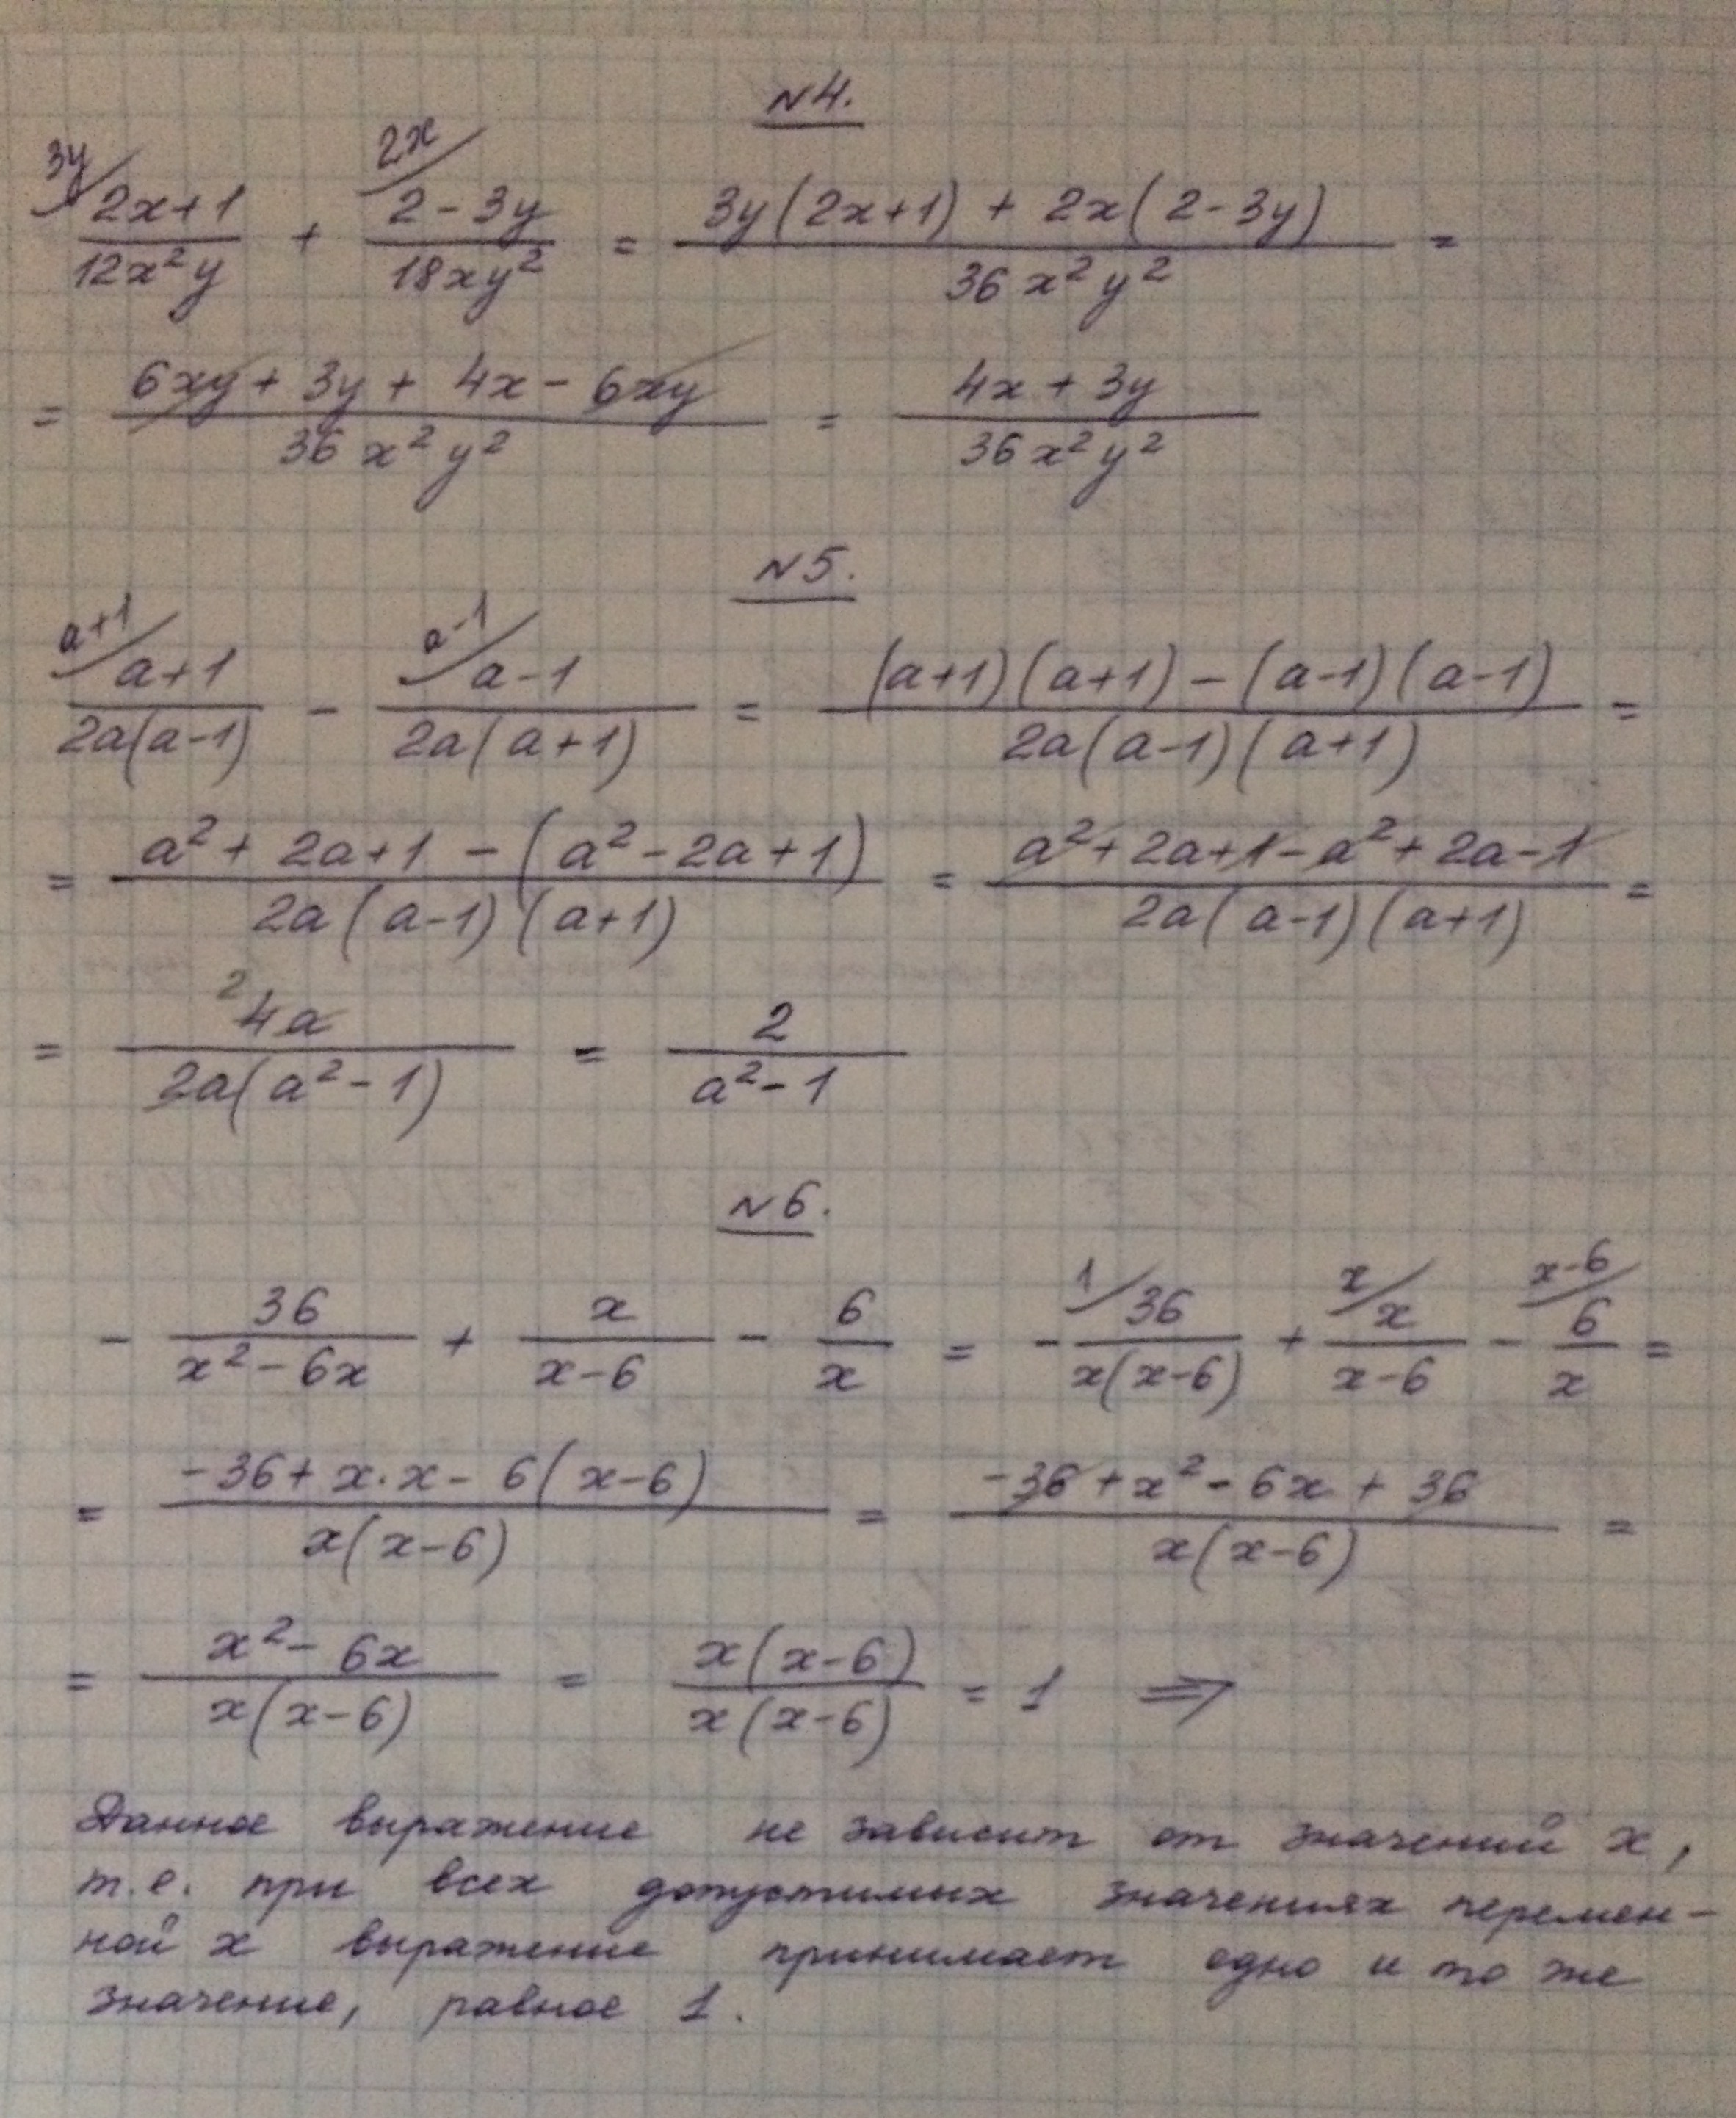 №4.
3y/ 2x+1 / 12x²y + 2x/ 2-3y / 18xy² = 3y(2x+1) + 2x(2-3y) / 36x²y² =
= 6xy + 3y + 4x - 6xy / 36x²y² = 4x + 3y / 36x²y²
№5.
a+1/ a+1 / 2a(a-1) - a-1/ a-1 / 2a(a+1) = (a+1)(a+1) - (a-1)(a-1) / 2a(a-1)(a+1) =
= a² + 2a+1 - (a² - 2a+1) / 2a(a-1)(a+1) = a² + 2a+1 - a² + 2a - 1 / 2a(a-1)(a+1) =
= ²4a / 2a(a² - 1) = 2 / a² - 1
№6.
- 36 / x² - 6x + x / x-6 - 6 / x = - 1/ 36 / x(x-6) + x/ x / x-6 - x-6/ 6 / x =
= -36 + x·x - 6(x-6) / x(x-6) = -36 + x² - 6x + 36 / x(x-6) =
= x² - 6x / x(x-6) = x(x-6) / x(x-6) = 1 ⇒
Данное выражение не зависит от значений x,
т.е. при всех допустимых значениях перемен-
ной x выражение принимает одно и то же
значение, равное 1.